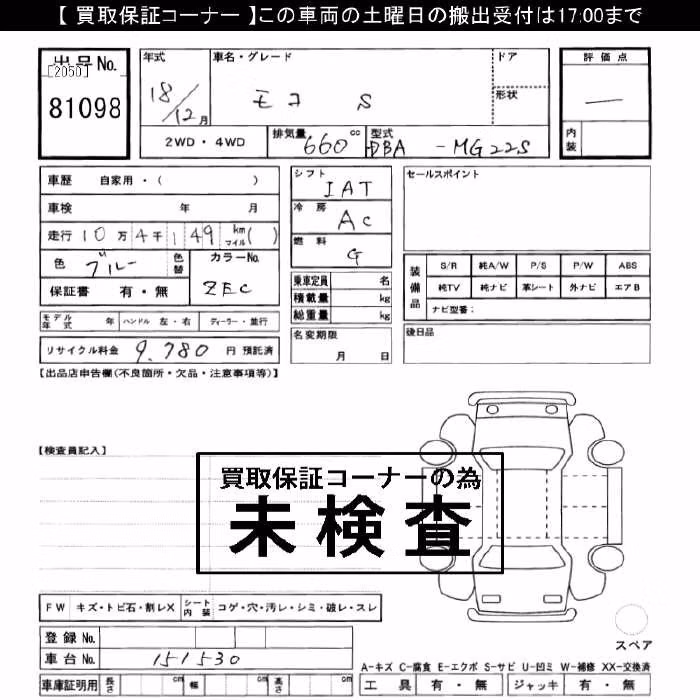 【 買取保証コーナー 】この車両の土曜日の搬出受付は17:00まで
出品No.
[2050]
81098
年式
18/12月
車名・グレード
モコ S
ドア
形状
評価点
—
内装
2WD・4WD
排気量 660 cc
型式 DBA - MG22S
車歴 自家用・( )
車検 年 月
走行 10万4千149 km マイル( )
色 ブルー 色替
カラーNo. ZEC
保証書 有・無
シフト IAT
冷房 AC
燃料 G
乗車定員 名
積載量 kg
総重量 kg
セールスポイント
装備品
S/R 純A/W P/S P/W ABS
純TV 純ナビ 革シート 外ナビ エアB
ナビ型番:
モデル年式 年 ハンドル 左・右 ディーラー・並行
リサイクル料金 9,780 円 預託済
名変期限
月 日
後日品
【出品店申告欄(不良箇所・欠品・注意事項等)】
【検査員記入】
買取保証コーナーの為
未検査
FW キズ・トビ石・割レX シート内装 コゲ・穴・汚レ・シミ・破レ・スレ
登録No.
車台No. 151530
車庫証明用 長さ cm 幅 cm 高さ cm
スペア
A-キズ C-腐食 E-エクボ S-サビ U-凹ミ W-補修 XX-交換済
工具 有・無 ジャッキ 有・無